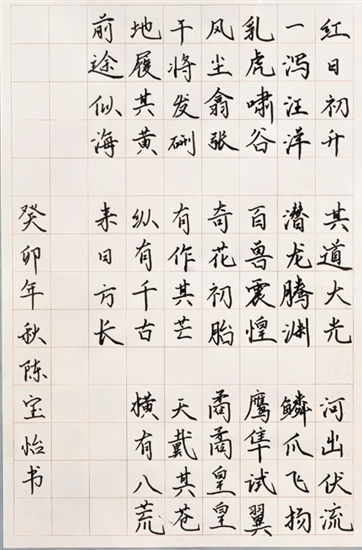 红日初升 其道大光 河出伏流
一泻汪洋 潜龙腾渊 鳞爪飞扬
乳虎啸谷 百兽震惶 鹰隼试翼
风尘翕张 奇花初胎 矞矞皇皇
干将发硎 有作其芒 天戴其苍
地履其黄 纵有千古 横有八荒
前途似海 来日方长
癸卯年秋陈宝怡书